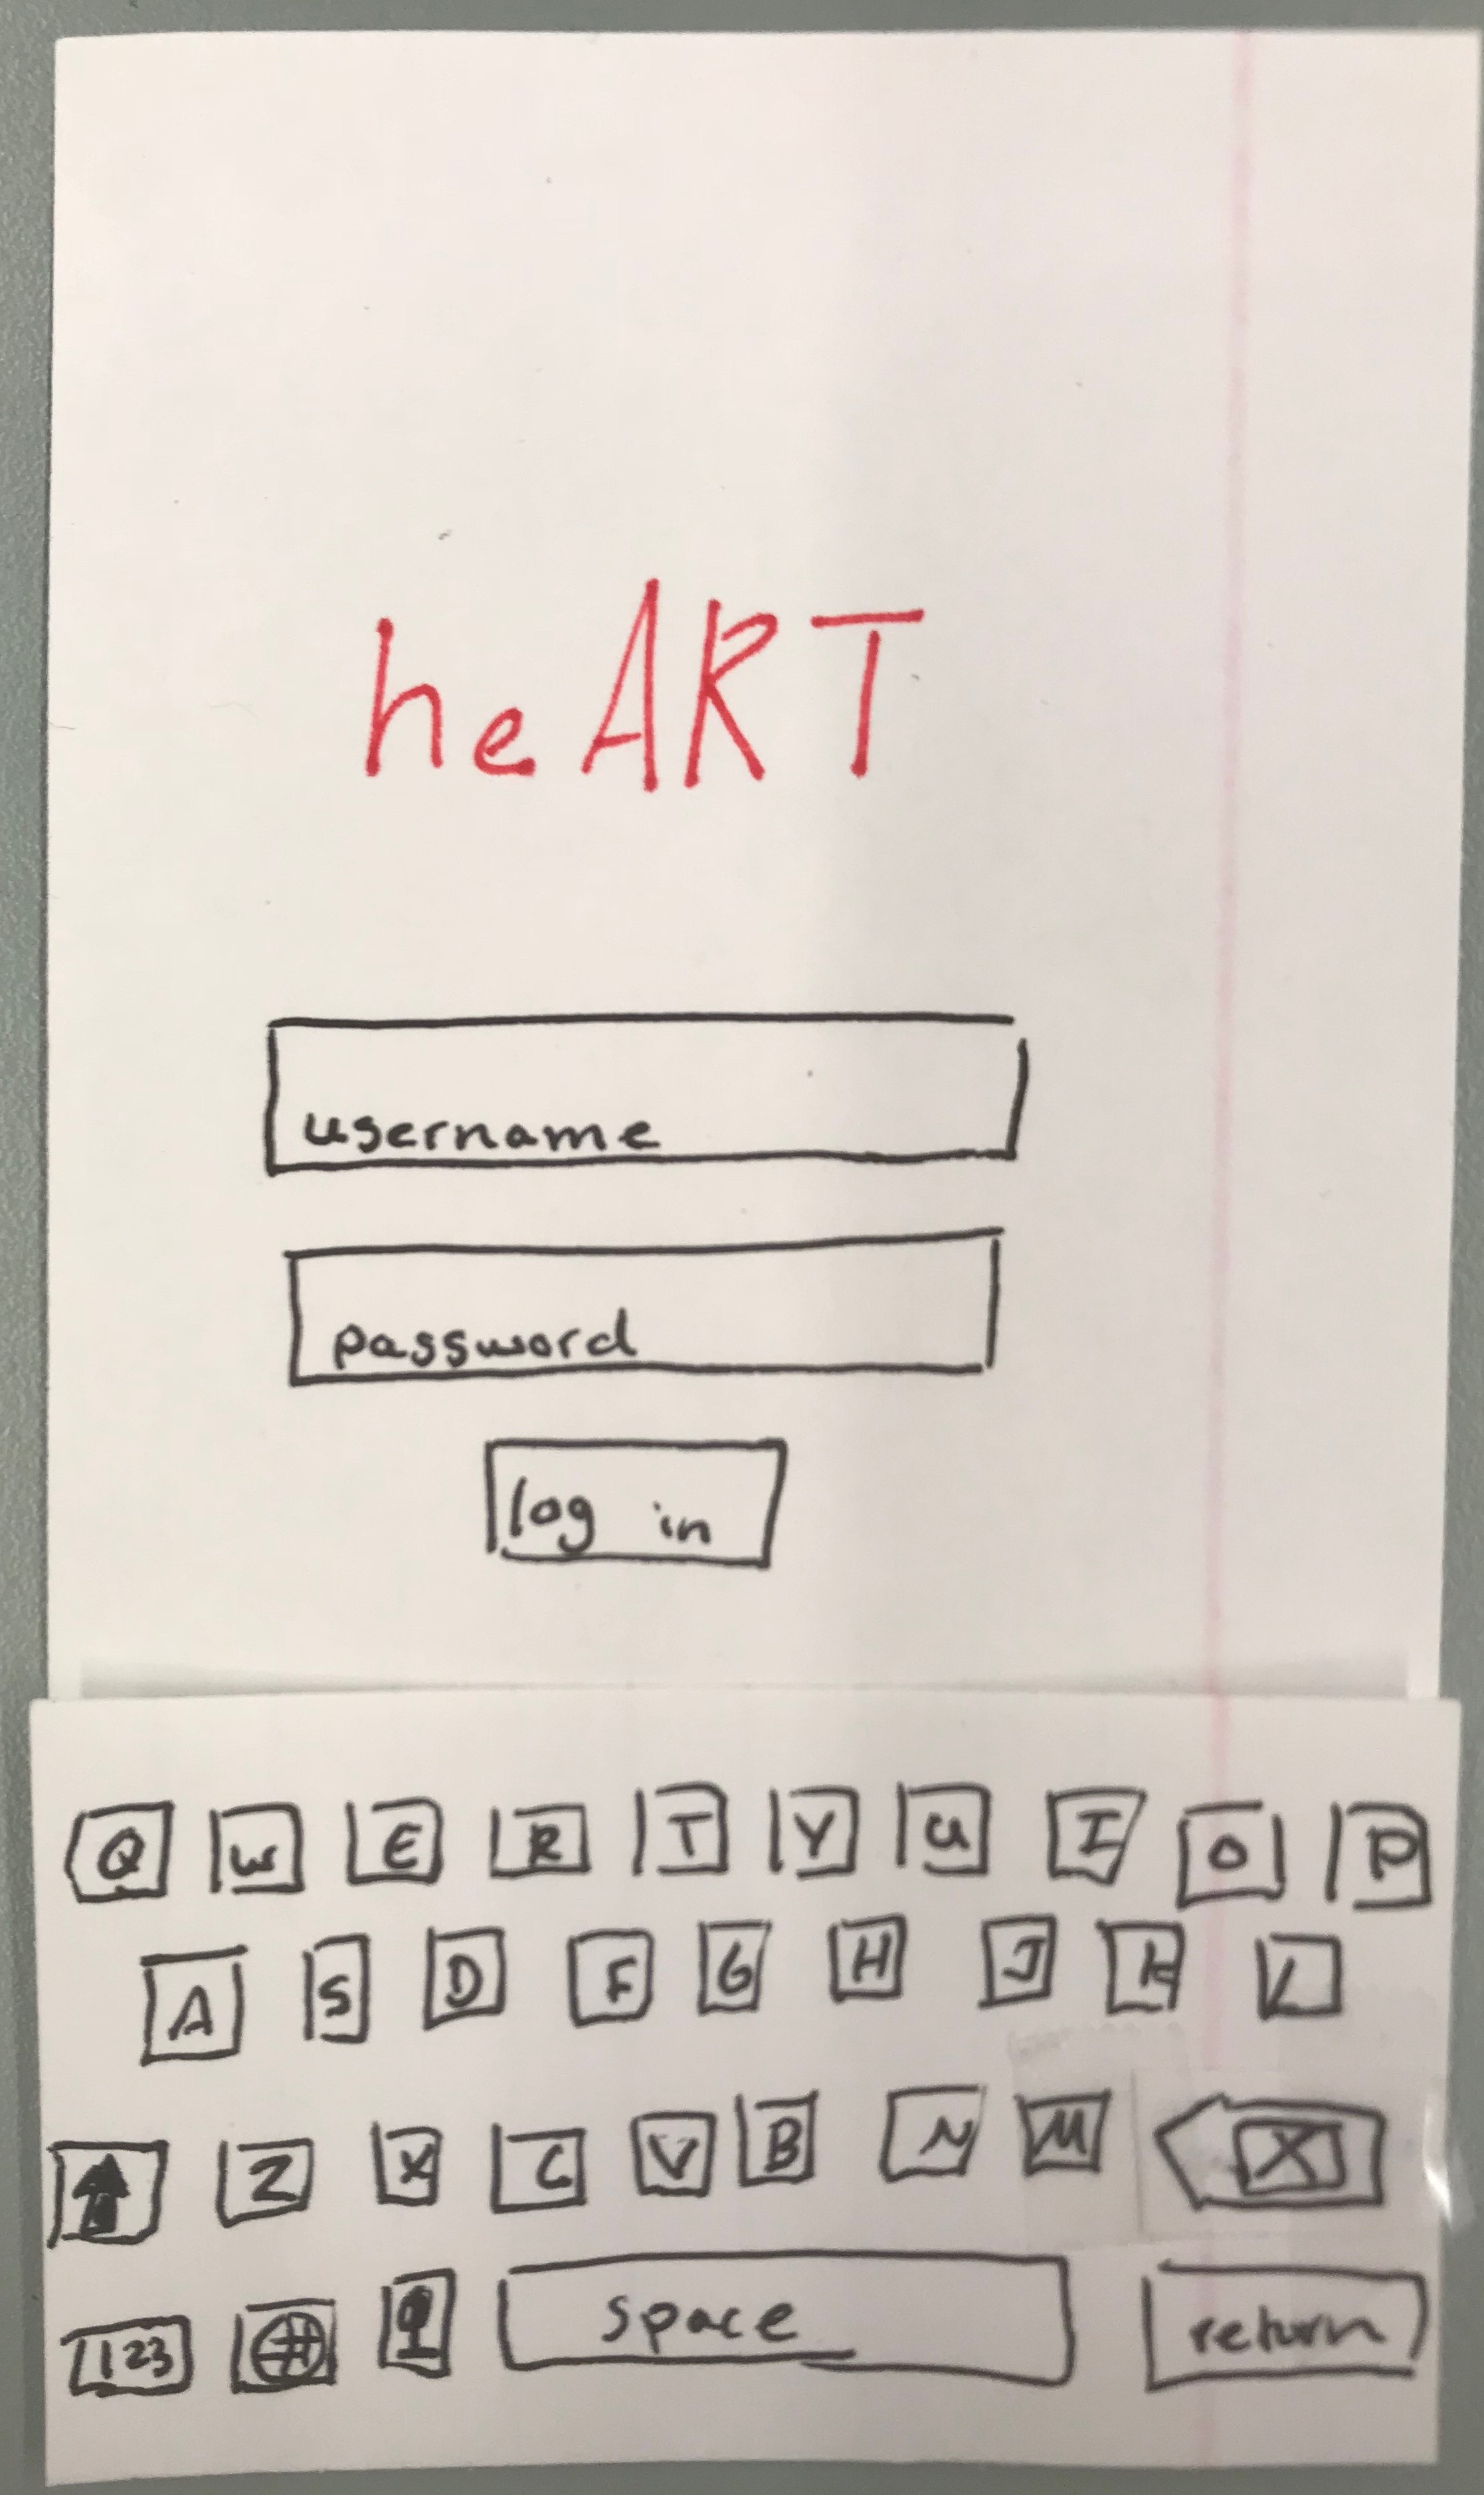 heART
username
password
log in
Q W E R T Y U I O P
A S D F G H J K L
Z X C V B N M X
123 space return